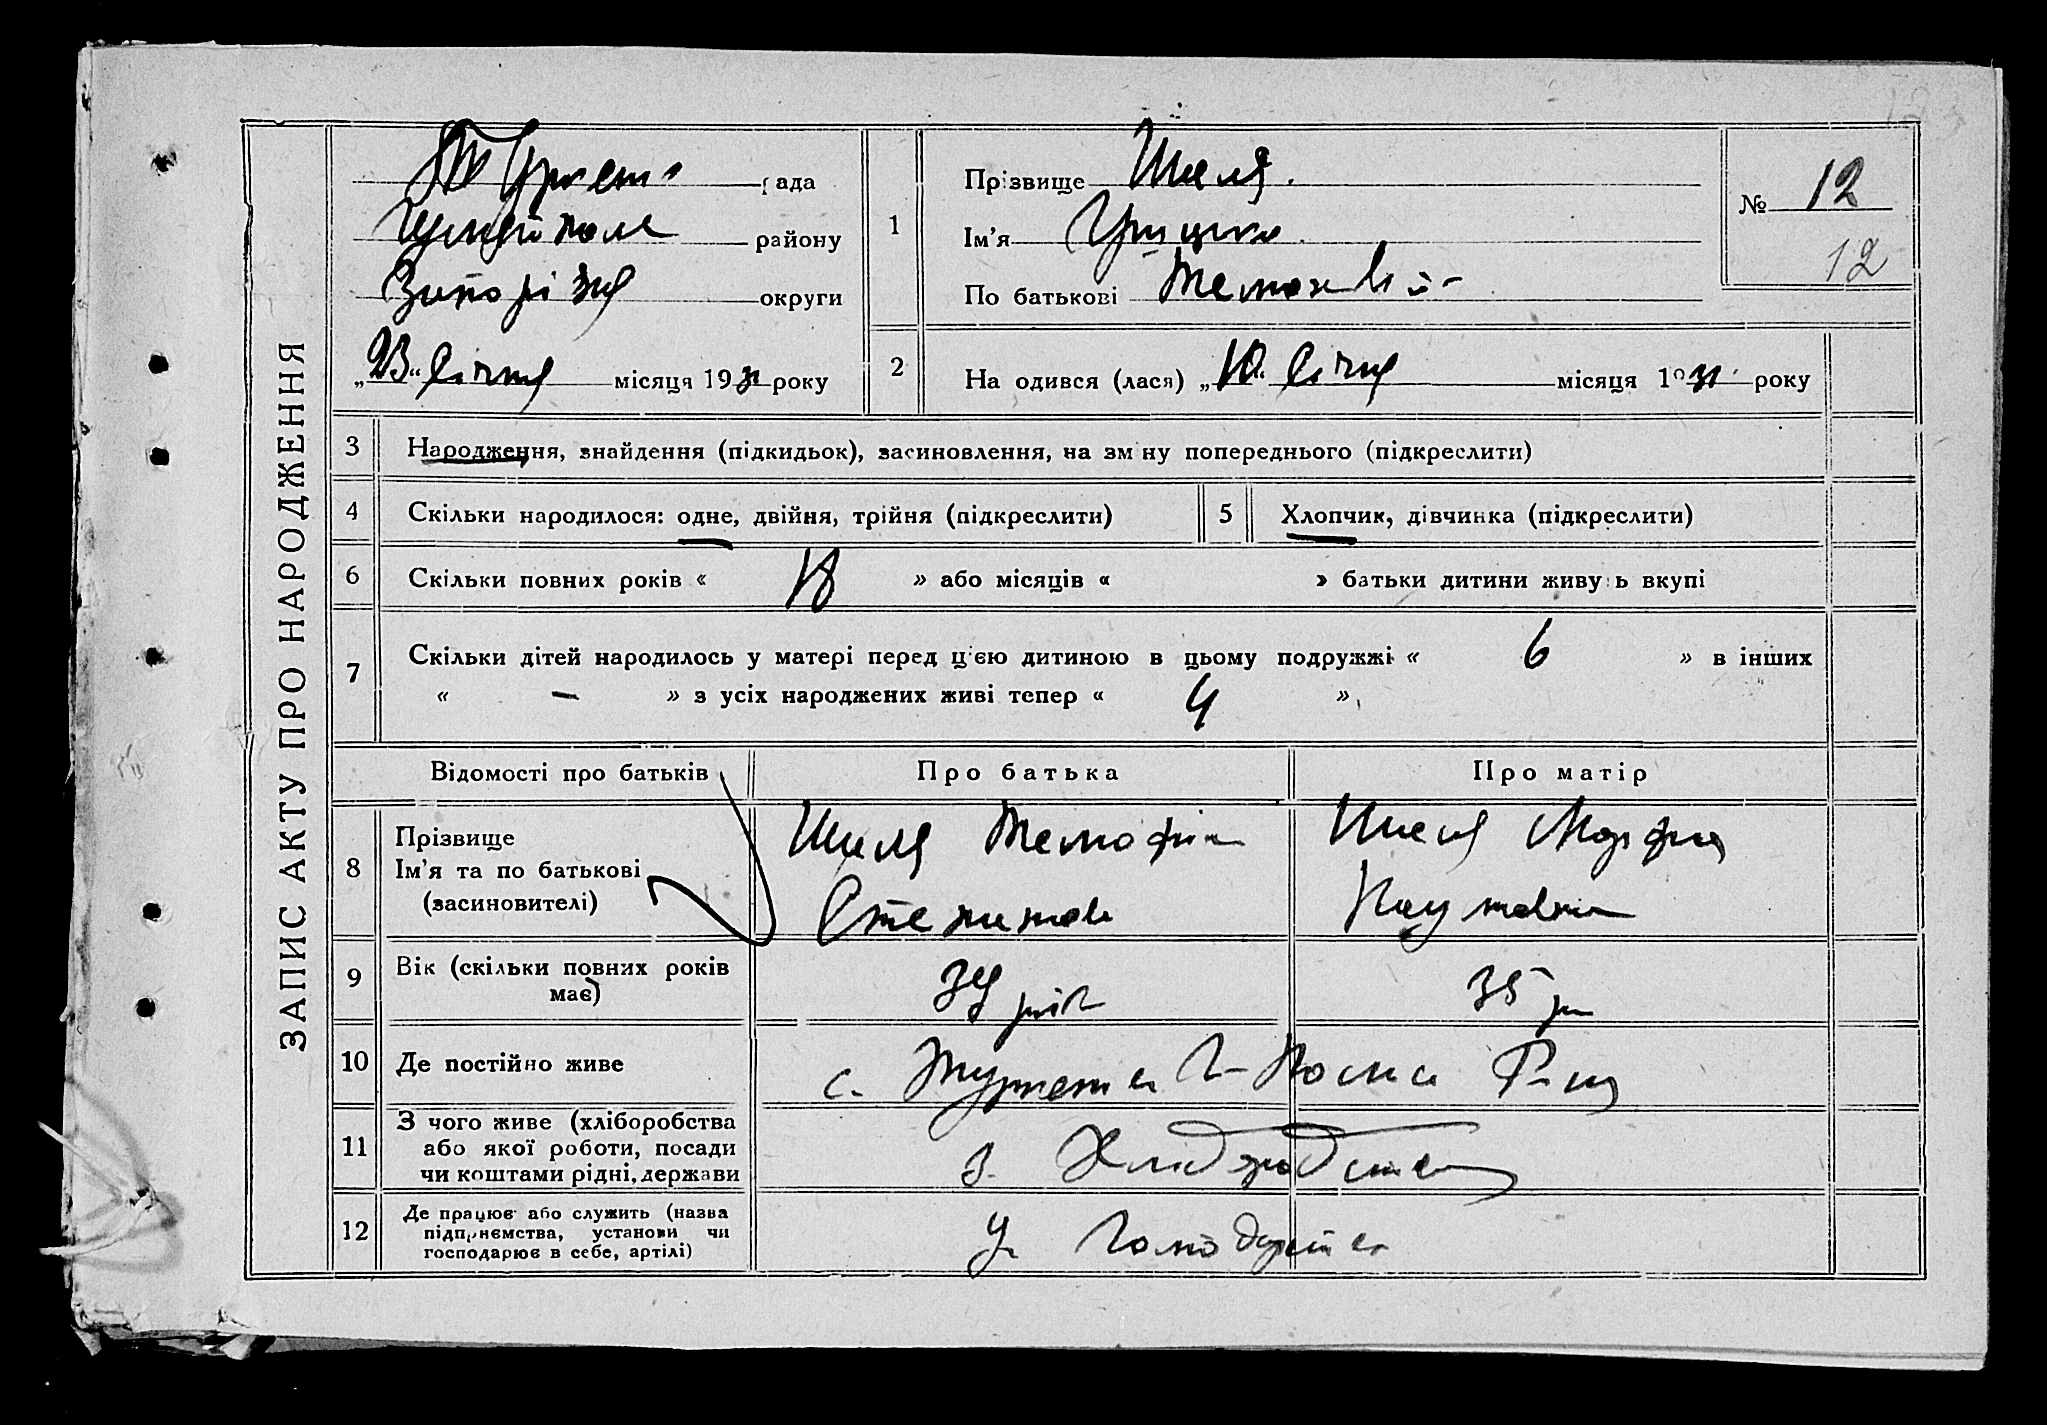 ЗАПИС АКТУ ПРО НАРОДЖЕННЯ
рада
району
округи
„23“ січня місяця 1931 року
1
Прізвище Шиля
Ім'я Грицько
По батькові
№ 12
12
2
На одився (лася) „10“ січня місяця 1931 року
3 Народження, знайдення (підкидьок), засиновлення, на зм ну попереднього (підкреслити)
4 Скільки народилося: одне, двійня, трійня (підкреслити)
5 Хлопчик, дівчинка (підкреслити)
6 Скільки повних років « » або місяців « » батьки дитини живу ь вкупі
7 Скільки дітей народилось у матері перед ц'єю дитиною в цьому подружжі « 6 » в інших
« – » з усіх народжених живі тепер « 4 »
Відомості про батьків Про батька Про матір
8 Прізвище
Ім'я та по батькові
(засиновителі)
Шиля Тимофій
Степанов
Шиля Марфа
Наумовна
9 Вік (скільки повних років
має)
34 рік
35 р
10 Де постійно живе
с.
11 З чого живе (хліборобства
або якої роботи, посади
чи коштами рідні, держави
з. Хліборобства
12 Де працює або служить (назва
підприємства, установи чи
господарює в себе, артілі)
У Господарстві